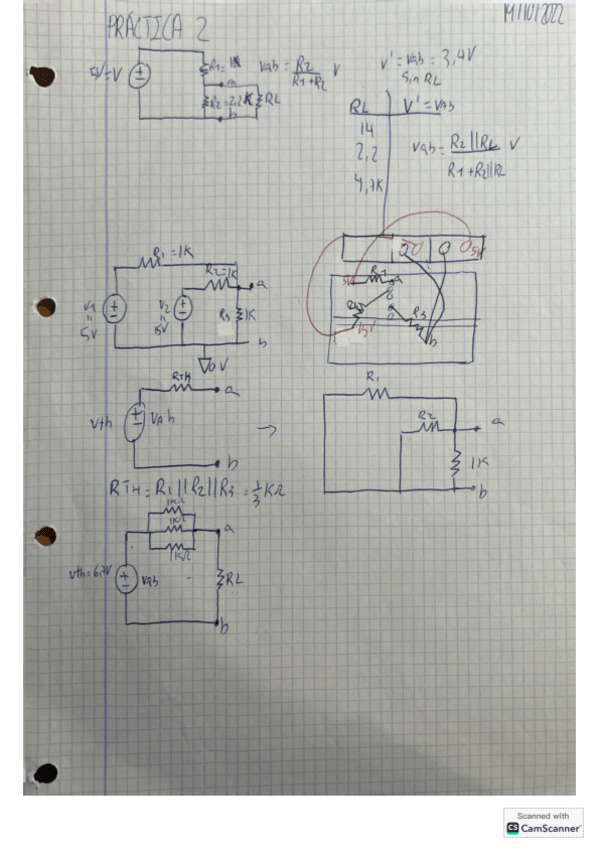 PRÁCTICA 2
14/10/2022
5V=V
R1=1K
a
R2=2,2K
RL
b
Vab = R2 / R1+R2 V
V' = Vab = 3,4V
Sin RL
RL V'=VAB
14
2,2
4,7K
Vab = R2||RL / R1+R2||RL V
R1=1K
R2=1K
a
V1
=
5V
V2
R3
1K
b
0V
5V
R1
a
R3
15V
b
RTH
a
Vth
VAb
b
R1
R2
a
1K
b
RTH = R1||R2||R3 = 1/3 KΩ
1KΩ
1KΩ
1KΩ
a
Vth=6,7V
Vab
RL
b
Scanned with
CS CamScanner